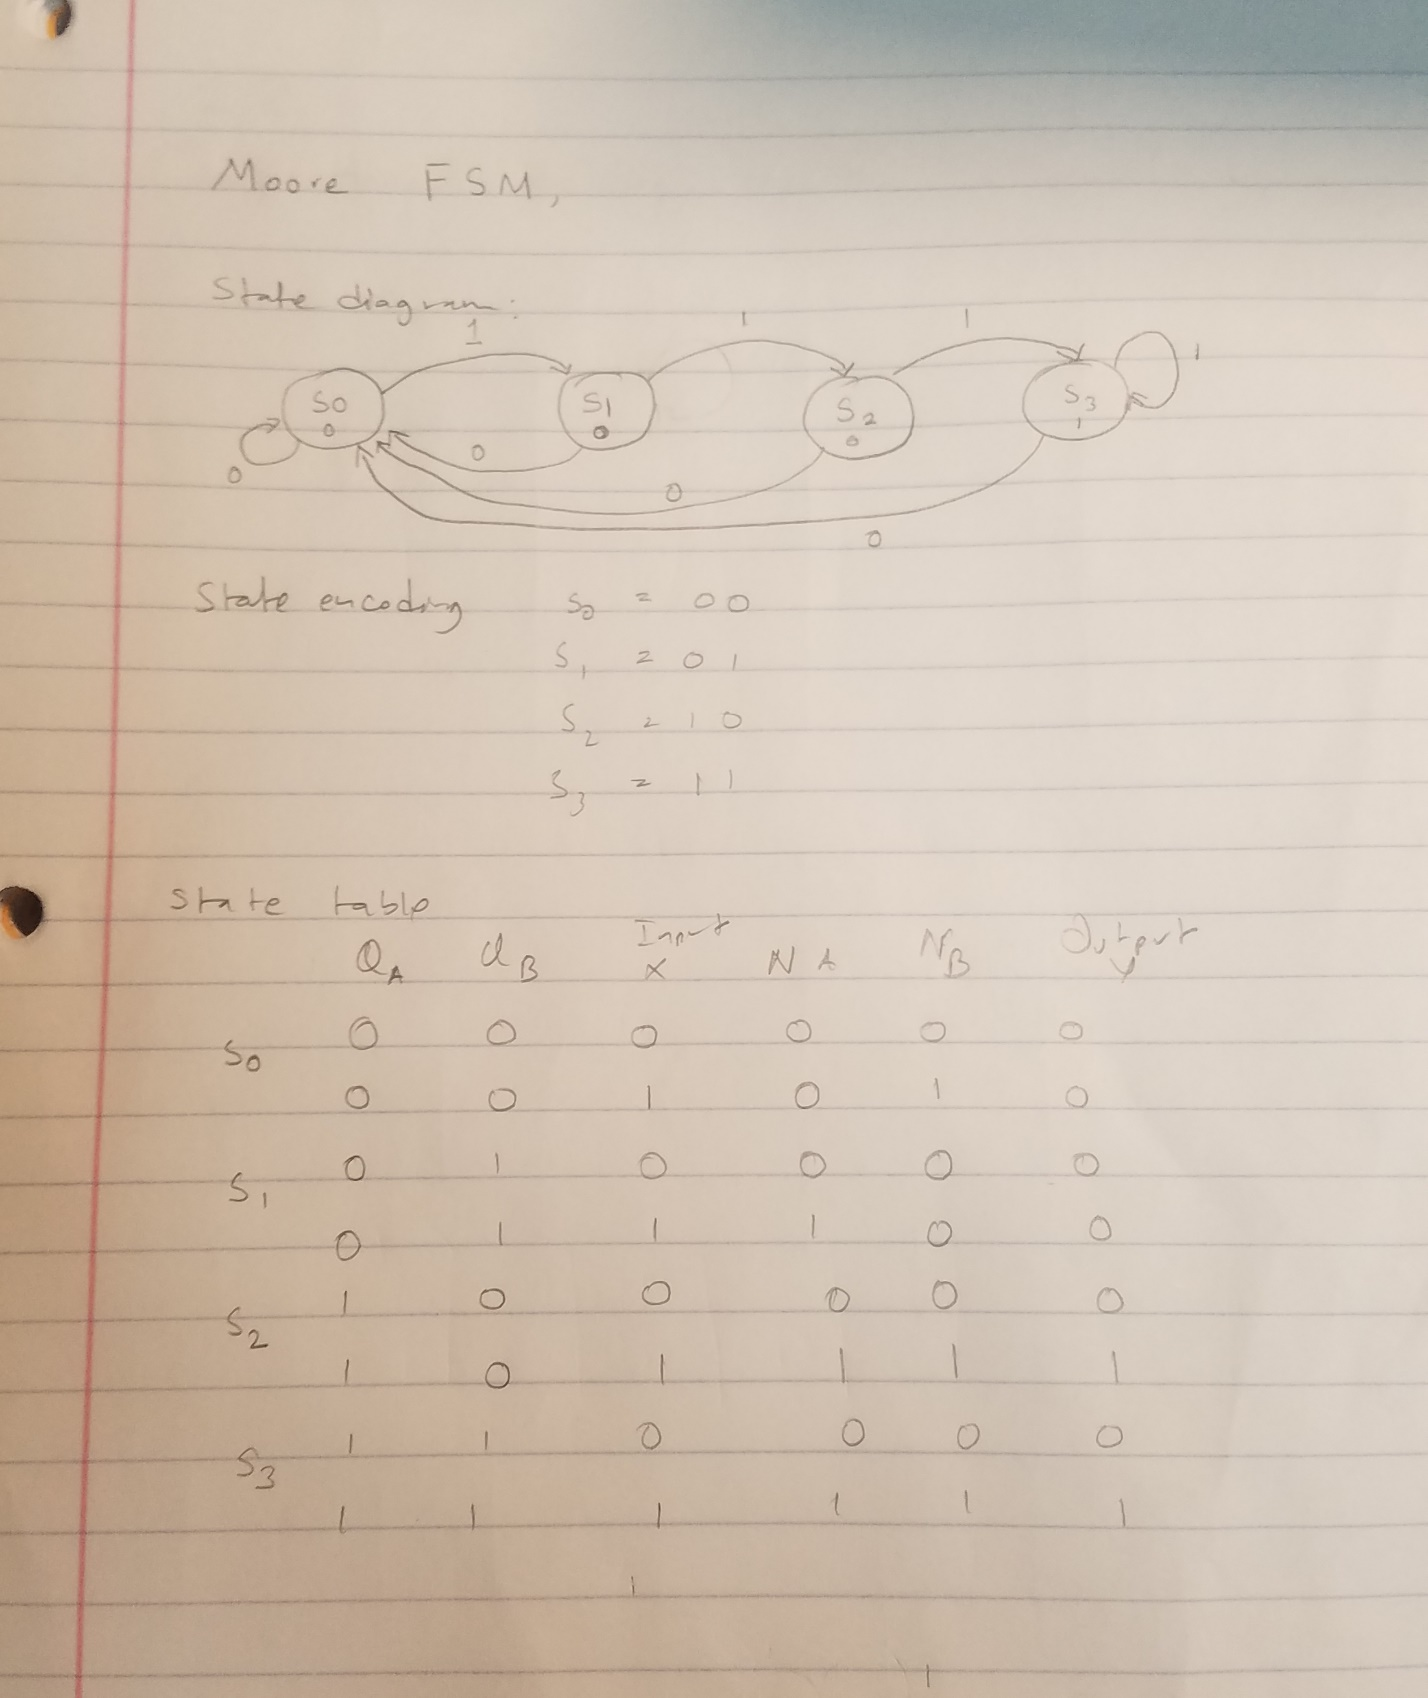 Moore FSM,
State diagram:
1 1 1
S0 S1 S2 S3 1
0 0 0 1
0 0 0 0
State encoding S0 = 00
S1 = 01
S2 = 10
S3 = 11
State table
QA QB Input X NA NB Output y
S0 0 0 0 0 0 0
0 0 1 0 1 0
S1 0 1 0 0 0 0
0 1 1 1 0 0
S2 1 0 0 0 0 0
1 0 1 1 1 1
S3 1 1 0 0 0 0
1 1 1 1 1 1